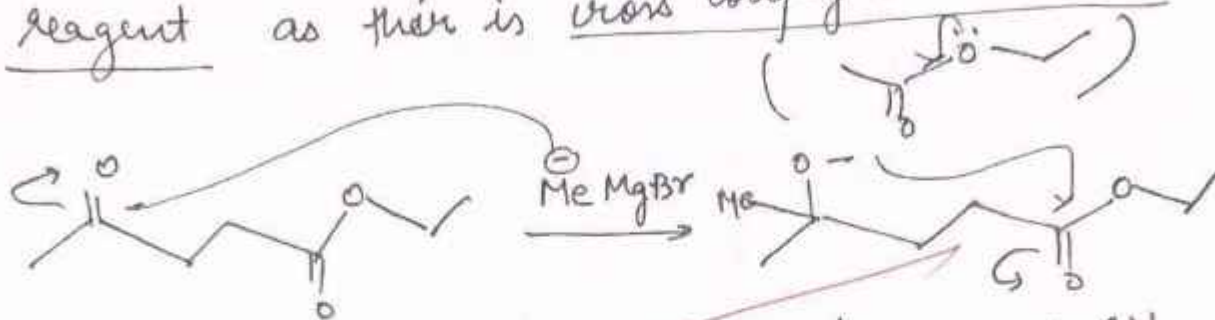 reagent as their is cross
O
O
O
O
⊖
Me MgBr
O -
Me
O
O